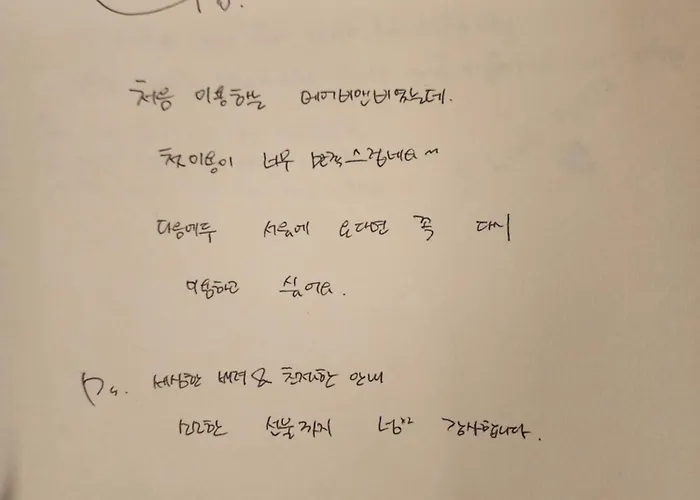 처음 이용하는 에어비앤비였는데.
첫이용이 너무 만족스럽네요~
다음에두 서울에 온다면 꼭 다시
이용하고 싶어요.
Ps. 세심한 배려 & 친절한 안내
소소한 선물까지 넘x2 감사합니다.